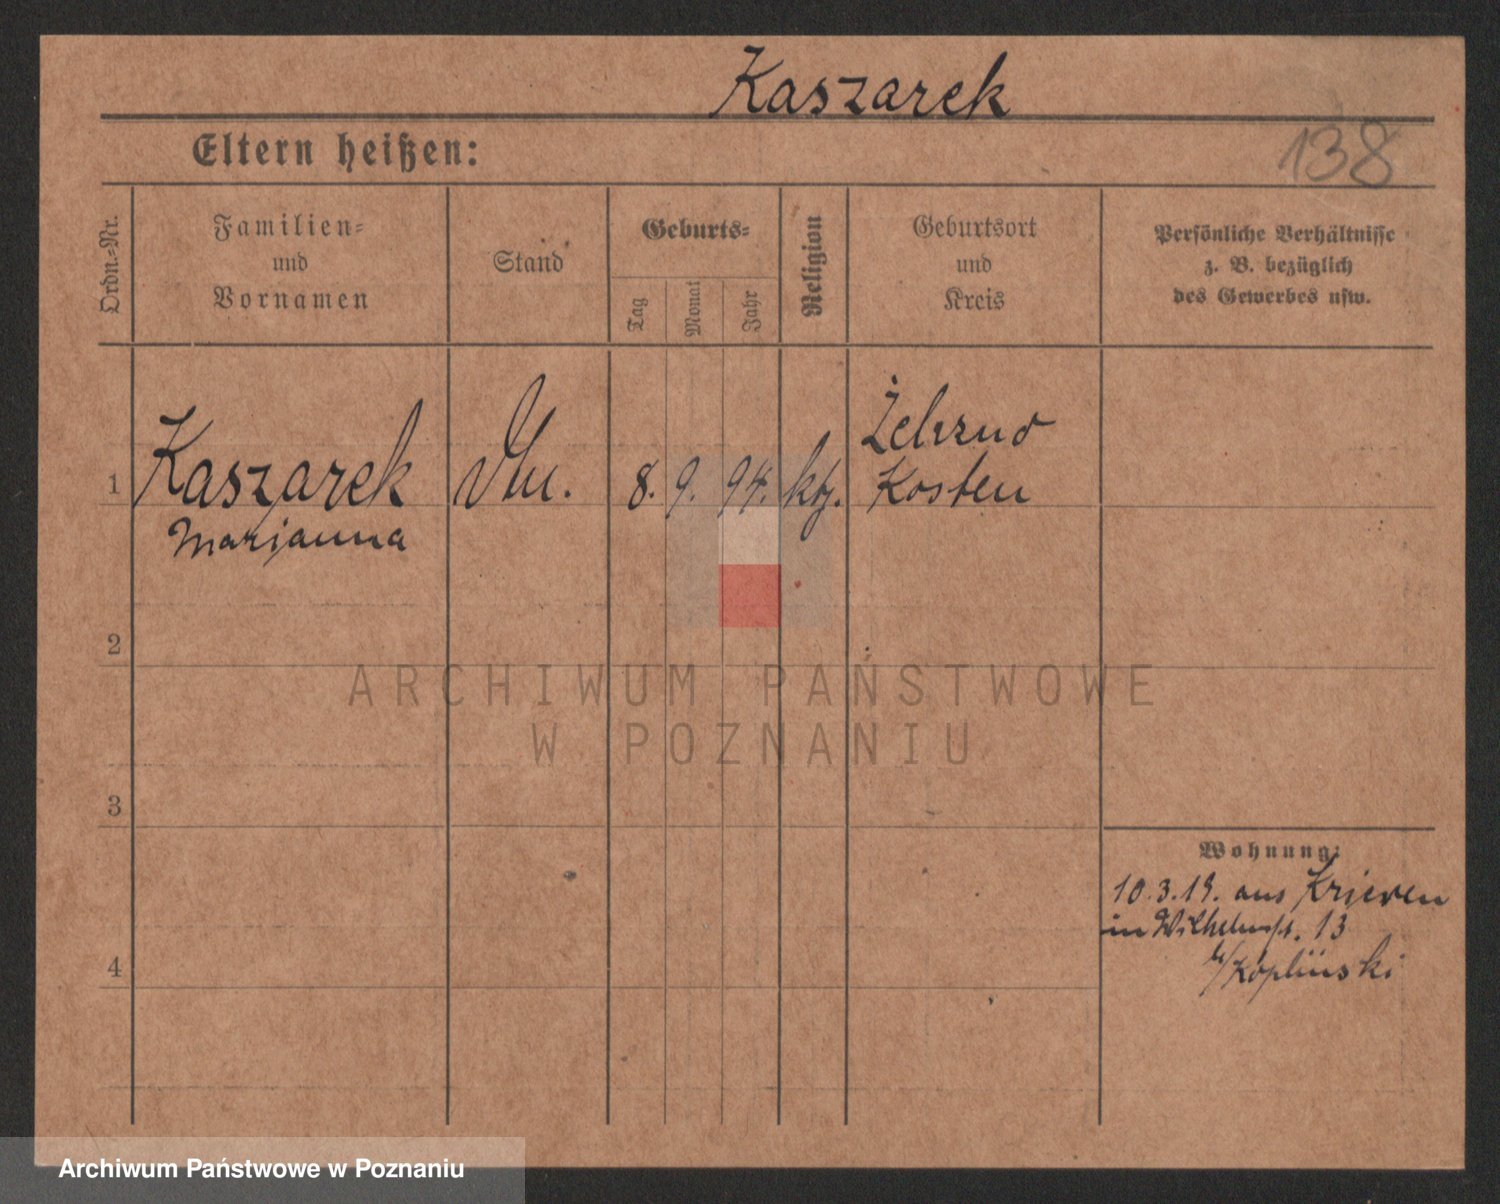 Kaszarek
138
Eltern heißen:
Ordn.-Nr.
Familien-
und
Vornamen
Stand
Geburts-
Tag
Monat
Jahr
Religion
Geburtsort
und
Kreis
Persönliche Verhältnisse
z. B. bezüglich
des Gewerbes usw.
1
Kaszarek
Marjanna
8. 9. 94. kth.
Kosten
2
3
4
Wohnung:
10.3.19. aus Krieven
in Wilhelmst. 13
b/Kopliński
ARCHIWUM PAŃSTWOWE
W POZNANIU
Archiwum Państwowe w Poznaniu